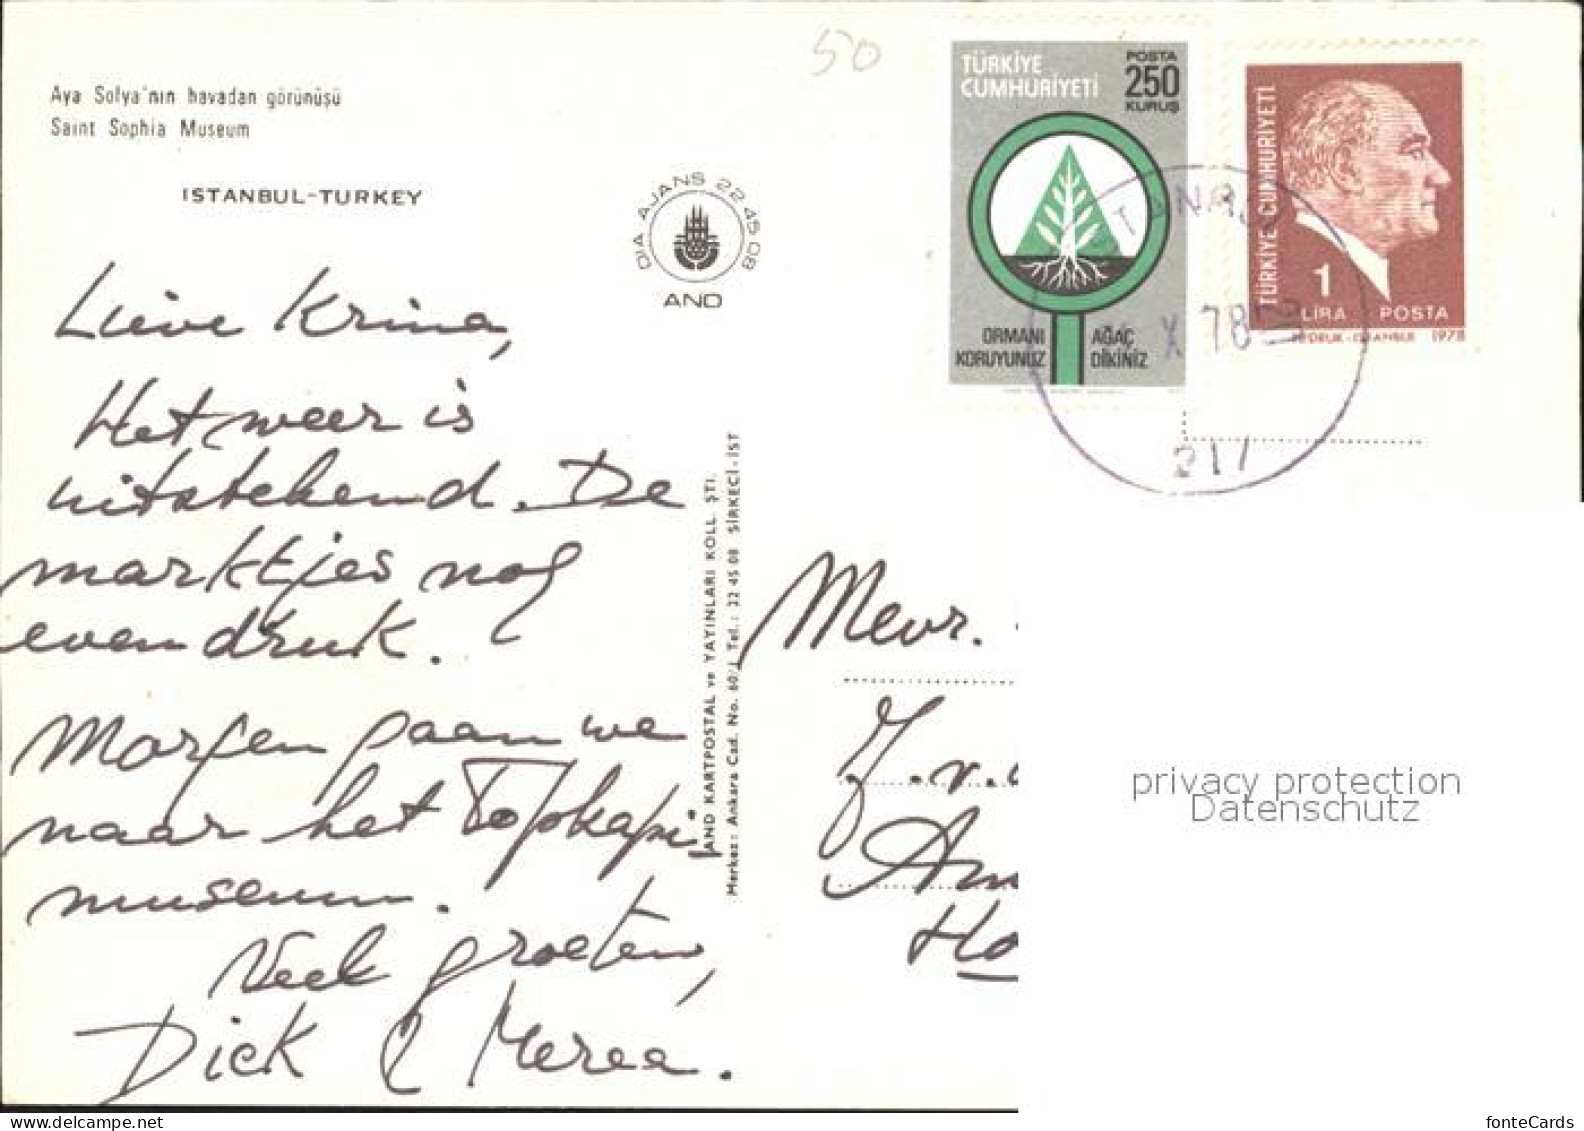 50
Aya Sofya'nın havadan görünüşü
Saint Sophia Museum
ISTANBUL-TURKEY
DIA AJANS 22 45 08
AND
TÜRKİYE
CUMHURİYETİ
POSTA
250
KURUŞ
ORMANI
KORUYUNUZ
AĞAÇ
DİKİNİZ
TÜRKİYE CUMHURİYETİ
1
LİRA POSTA
1978
X 78
217
Lieve Krina,
Het weer is
uitstekend. De
marktjes nog
even druk.
Morgen gaan we
naar het Topkapi
museum.
Veel groeten,
Dick & Meree.
AND KARTPOSTAL ve YAYINLARI KOLL. ŞTİ.
Merkez: Ankara Cad. No. 60/1 Tel.: 22 45 08 SİRKECİ-İST
Mevr.
privacy protection
Datenschutz
fonteCards